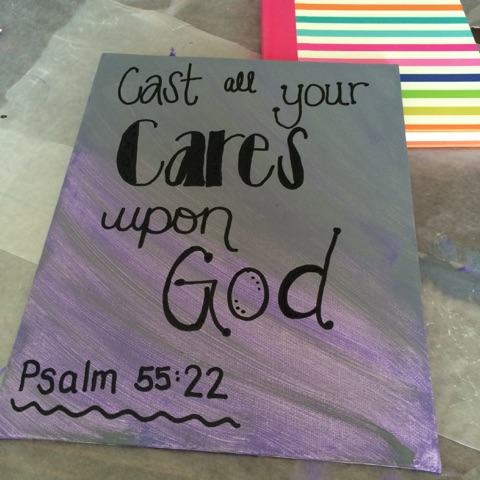 Cast all your
Cares
upon
God
Psalm 55:22